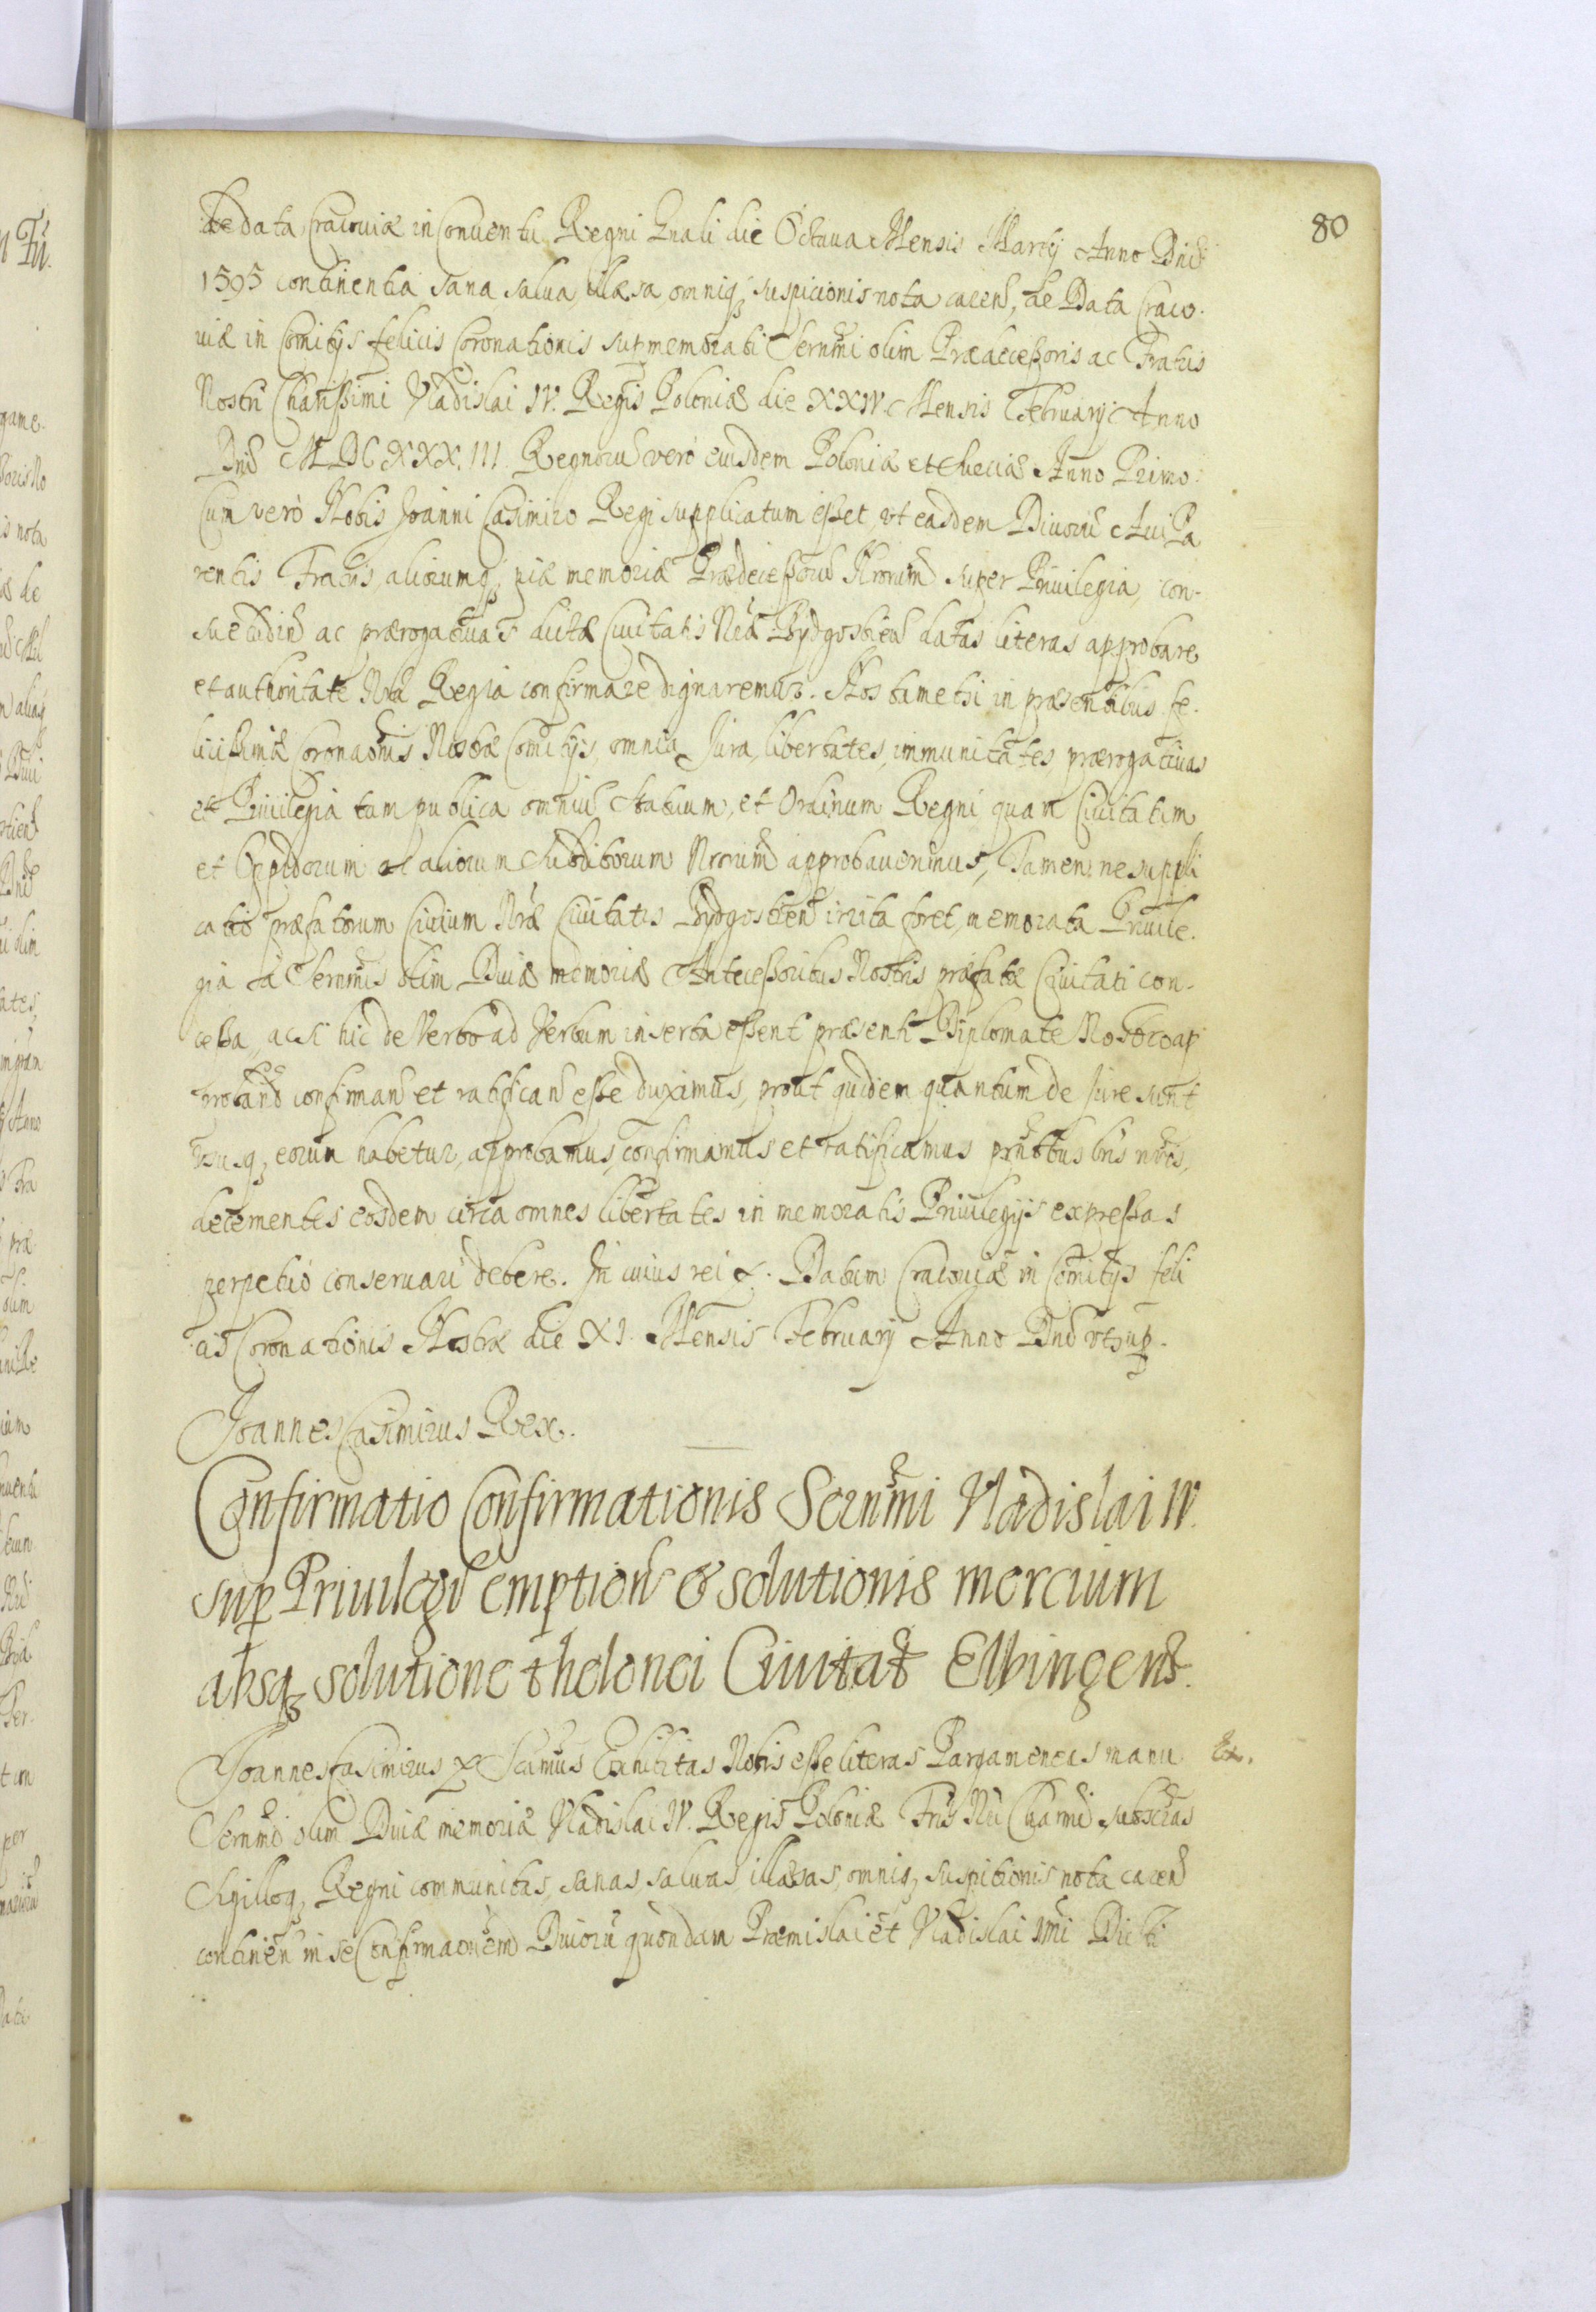 80
de data Cracouiæ in Conuentu Regni Gnali die Octaua Mensis Martij Anno Dni
1595 continentia sana salua, illæsa, omniq; suspicionis nota caren, de Data Craco-
uiæ in Comitijs felicis Coronationis supmemorati Sernmi olim Prædecessoris ac Fratris
Nostri Charissimi Vladislai IV. Regis Poloniæ die XXIV Mensis Februarij Anno
Dni MDCXXXIII Regnoru vero eiusdem Poloniæ et Sueciæ Anno Primo.
Cum vero Nobis Joanni Casimiro Regi supplicatum esset, vt easdem Diuoru Aui Pa
rentis Fratris aliorumq; piæ memoriæ Prædecessoru Nrorum super Priuilegia, con-
suetudin ac prærogatiuas dictæ Ciuitatis Nræ Bydgostien datas literas approbare
et authoritate Nra Regia confirmare dignaremur. Nos tametsi in præsentibus fe-
licissimæ Coronaonis Nostræ Comitijs, omnia Jura, libertates, immunitates, prærogatiuas
et Priuilegia tam publica omniu Statuum, et Ordinum Regni quam Ciuitatum
et Oppidorum ac aliorum Subditorum Nrorum approbauerimus, Tamen ne suppli
catio præfatorum Ciuium Nræ Ciuitatis Bydgostien irrita foret, memorata Priuile-
gia a Sernmis olim Diuæ memoriæ Antecessoribus Nostris præfatæ Ciuitati con-
cessa, acsi hic de Verbo ad Verbum inserta essent præsenti Diplomate Nostro ap
proband confirman et ratifican esse duximus, prout quidem quantum de Jure sunt
vsusq; eorum habetur, approbamus, confirmamus et ratificamus pntibus lris nris,
decernentes eosdem circa omnes libertates in memoratis Priuilegijs expressas
perpetuo conseruari debere. In cuius rei &. Datum Cracouiæ in Comitijs feli
cis Coronationis Nostræ die XI. Mensis Februarij Anno Dni vt sup.
Joannes Casimirus Rex.
Confirmatio Confirmationis Sernmi Vladislai IV.
sup Priuilegiu emption & solutionis mercium
absq; solutione thelonei Ciuitat Elbingens.
Joannes Casimirus & Scimus Exhibitas Nobis esse literas Pargameneas manu
Sernmi olim Diuæ memoriæ Vladislai IV. Regis Poloniæ Fris Nri Charmi subscras
Sigilloq; Regni communitas, sanas, saluas, illæsas, omniq; suspitionis nota caren
continen in se Confirmaonem Diuoru quondam Præmislai et Vladislai 1mi Dicti